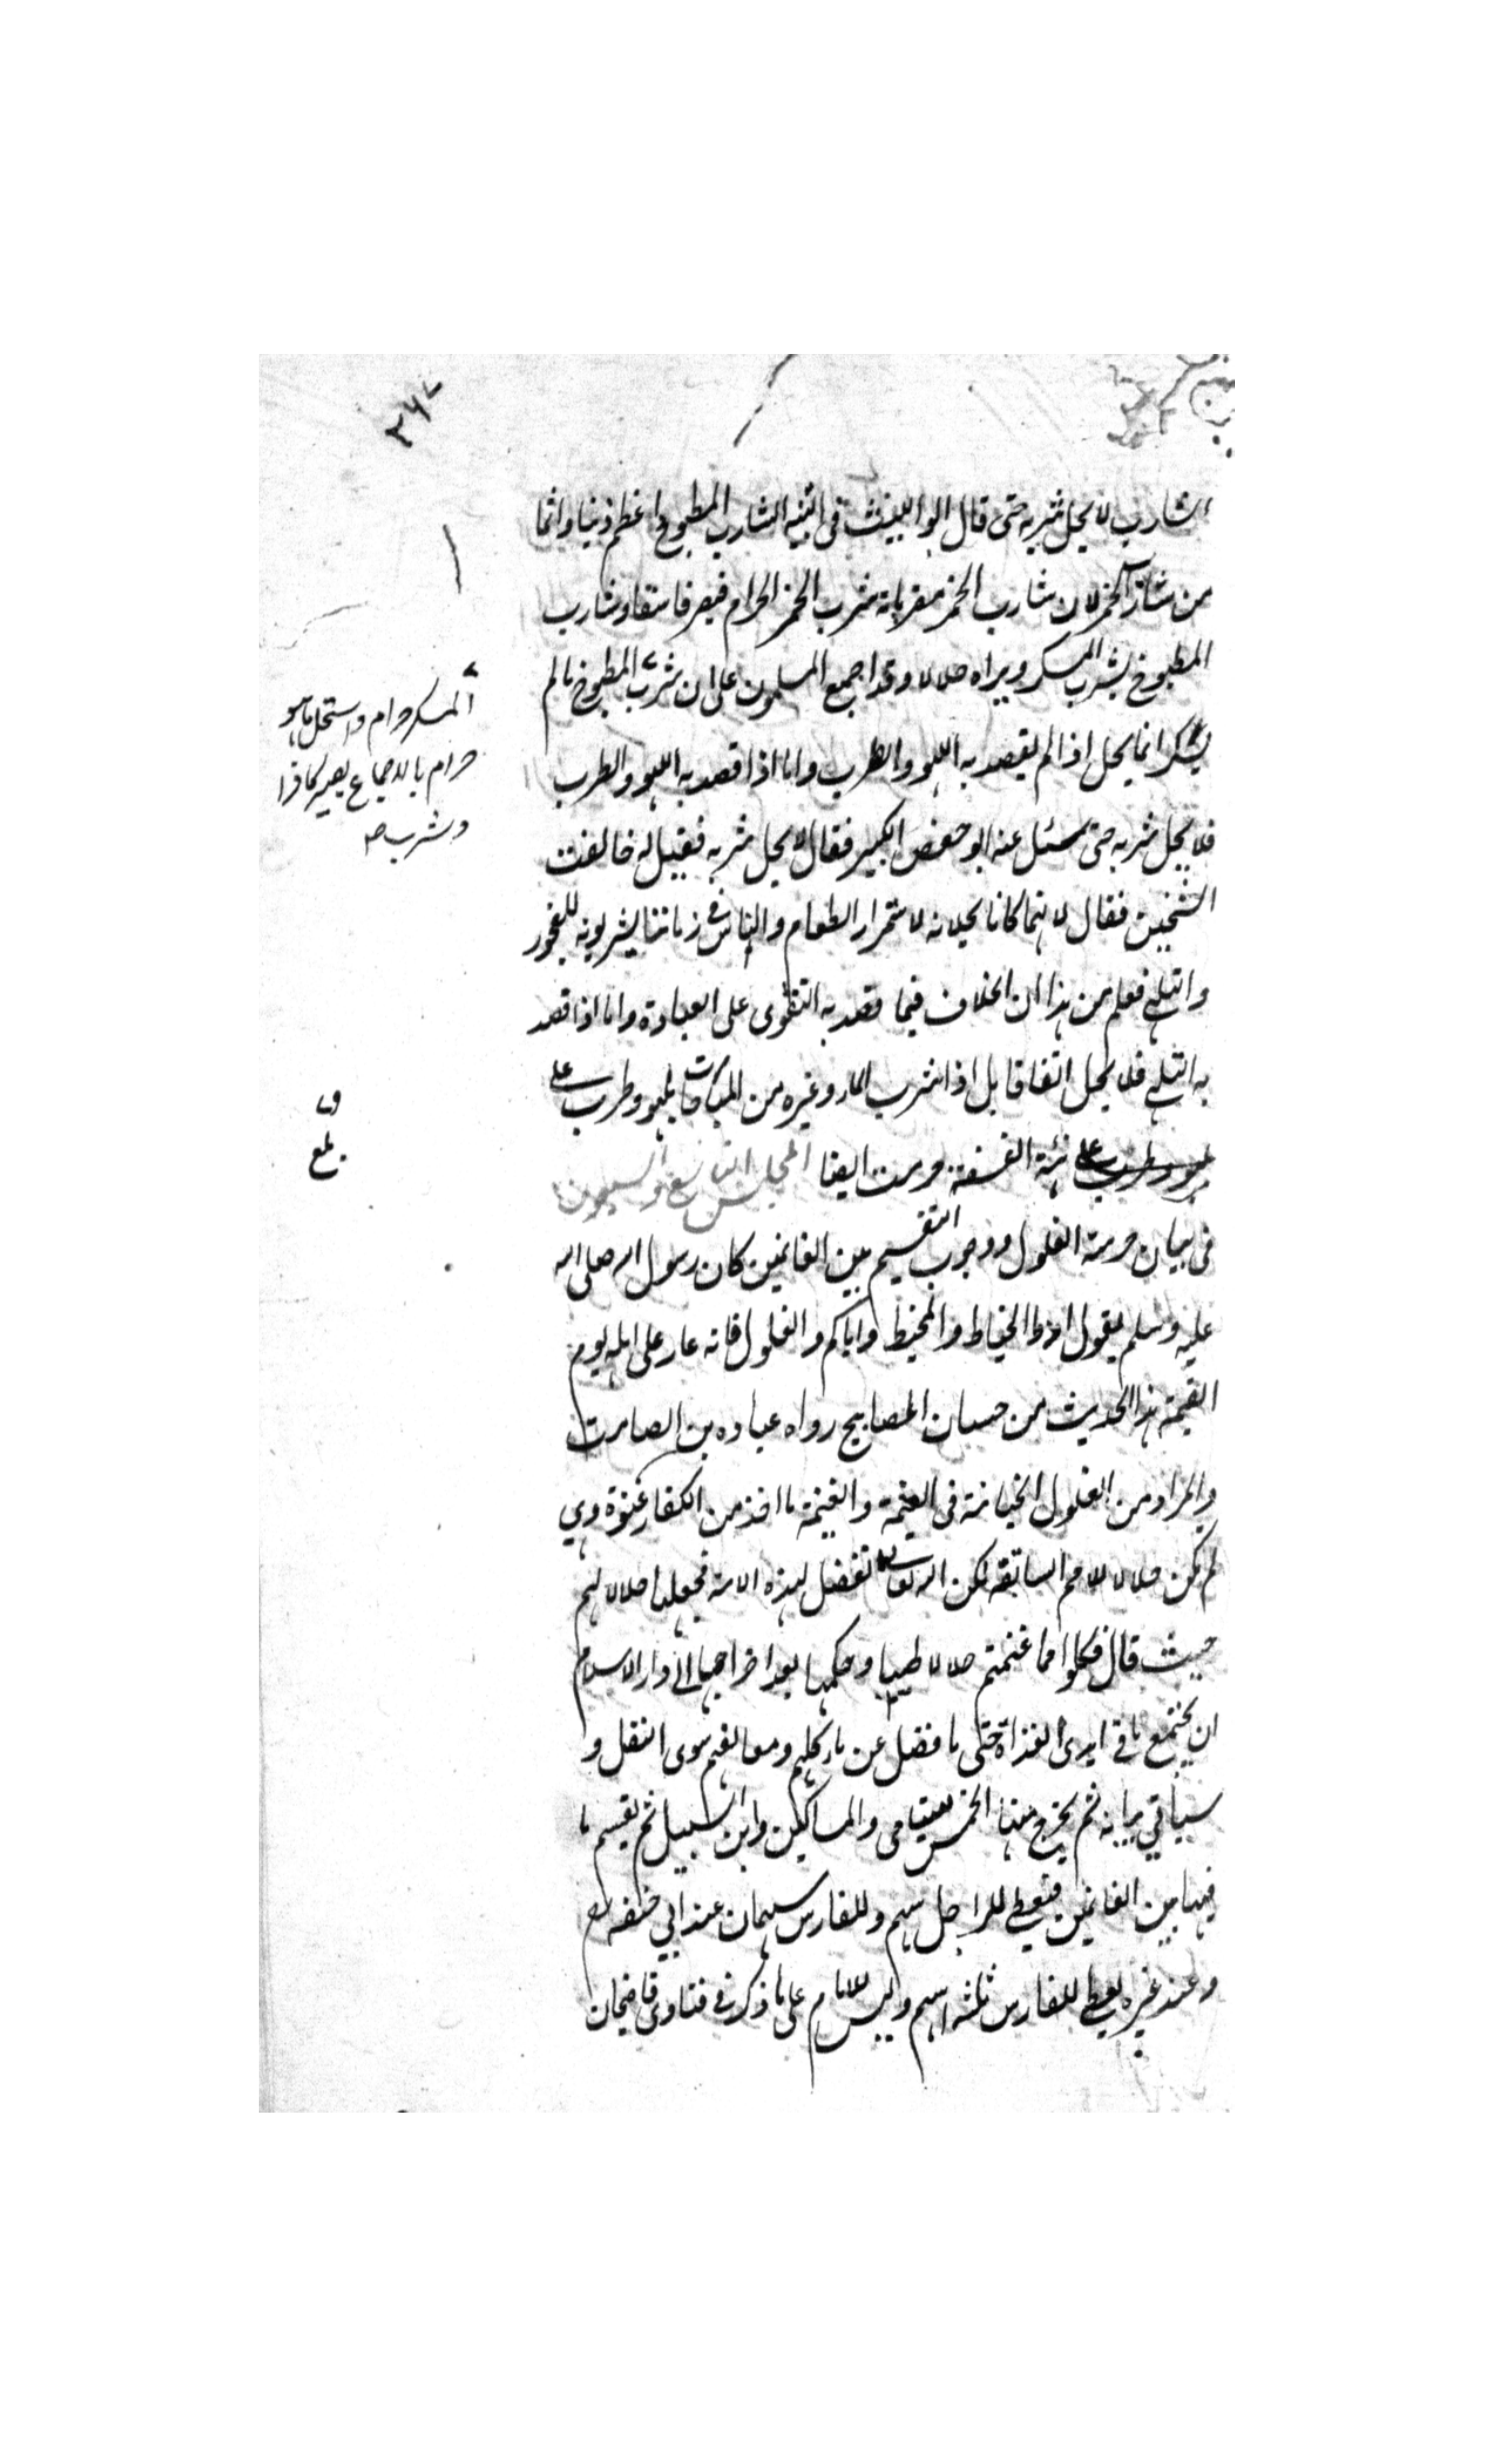 ٣٦٧
الشارب لا يحل شربه حتى قال ابو الليث فى التنبيه الشارب المطبوخ اعظم ذنبا واثما
من شارب الخمر لان شارب الخمر مقر بانه شرب الخمر الحرام فيصير فاسقا وشارب
المطبوخ يشرب المسكر ويراه حلالا وقد اجمع المسلمون على ان شرب المطبوخ مالم
يسكر انما يحل اذا لم يقصد به اللهو والطرب واما اذا قصد به اللهو والطرب
فلا يحل شربه حتى سئل عنه ابو حفص الكبير فقال لا يحل شربه فقيل له خالفت
الشيخين فقال لا نهما كانا يحلانه لاستمرار الطعام والناس فى زماننا يشربونه للفجور
والتلهى فعلم من هذا ان الخلاف فيما قصد به التقوى على العبادة واما اذا قصد
به التلهى فلا يحل اتفاقا بل اذا شرب الماء وغيره من المباحات بلهو وطرب على
لهو وطرب على هيئة الفسقة حرمت ايضا المجلس التاسع والسبعون
فى بيان حرمة الغلول ووجوب التقسيم بين الغانمين كان رسول الله صلى الله
عليه وسلم يقول ادوا الخياط والمخيط واياكم والغلول فانه عار على اهله يوم
القيمة هذا الحديث من حسان المصابيح رواه عباده بن الصامت
والمراد من الغلول الخيانة فى الغنيمة والغنيمة ما اخذ من الكفار عنوة وهي
لم يكن حلالا للامم السابقة لكن الله تعالى تفضل لهذه الامة فجعلها حلالا لهم
حيث قال فكلوا مما غنمتم حلالا طيبا وحكمها بعد اخراجها الى دار الاسلام
ان يجتمع ما فى ايدى الغزاة حتى ما فضل عن ماكلهم ومعالفهم سوى النفل و
سياتي بيانه ثم يخرج منها الخمس لليتامى والمساكين وابن السبيل ثم يقسم ما
فيها بين الغانمين فيعطى للراجل سهم وللفارس سهمان عند ابي حنيفه
وعند غيره يعطى للفارس ثلثه اسهم وليس للامام على ما ذكر فى فتاوى قاضيخان
المسكر حرام واستحل ما هو
حرام بالاجماع يصير كافرا
وشرب